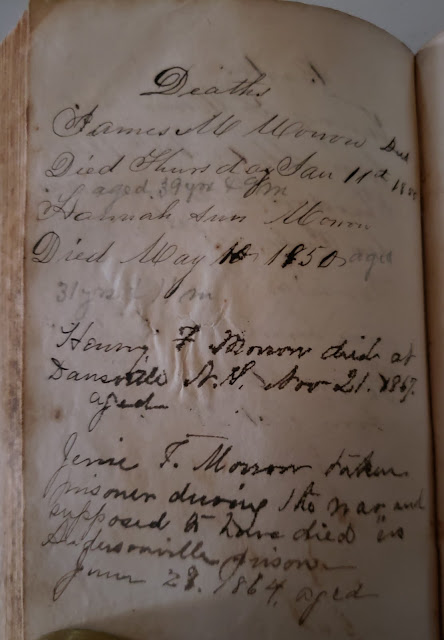 Deaths
James M Morrow Died
Died Thursday Jan 11th
aged 39 yrs & 9 m
Hannah Ann Morrow
Died May 1850 aged
31 yrs m
Henry F Morrow died at
Dansville N.Y. Nov 21. 1867.
aged
Jesse F. Morrow taken
prisoner during the war and
supposed to have died in
Andersonville prison
June 28. 1864, aged